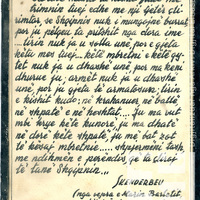 trimnin tuej edhe me një gjeter cli
rimtar, se Shqipnin nuk e mungojnë burrat
por ju përgeu ta pritshit nga dora eme
...lirin nuk ju a solla une por e gjeta
këtu mes tuej... këtë mbretni e këtë qy-
tet nuk ju a dhashë unë por ma keni
dhurue ju; armët nuk ju a dhashë
unë, por ju gjeta të armatosun; lirin
e kishit kudo: në krahanuer, në ballë,
në shpatë e në heshtat... Ju ma vut-
mbi krye këtë kunorë, ju ma dhatë
në dorë këtë shpatë, ju më bat zot
të kësaj mbretnie..... shpjermëni tash,
me ndihmën e perëndis, që ta liroj
të tanë Shqipnin...
SKENDERBEU
(nga vepra e Marin Barletit,